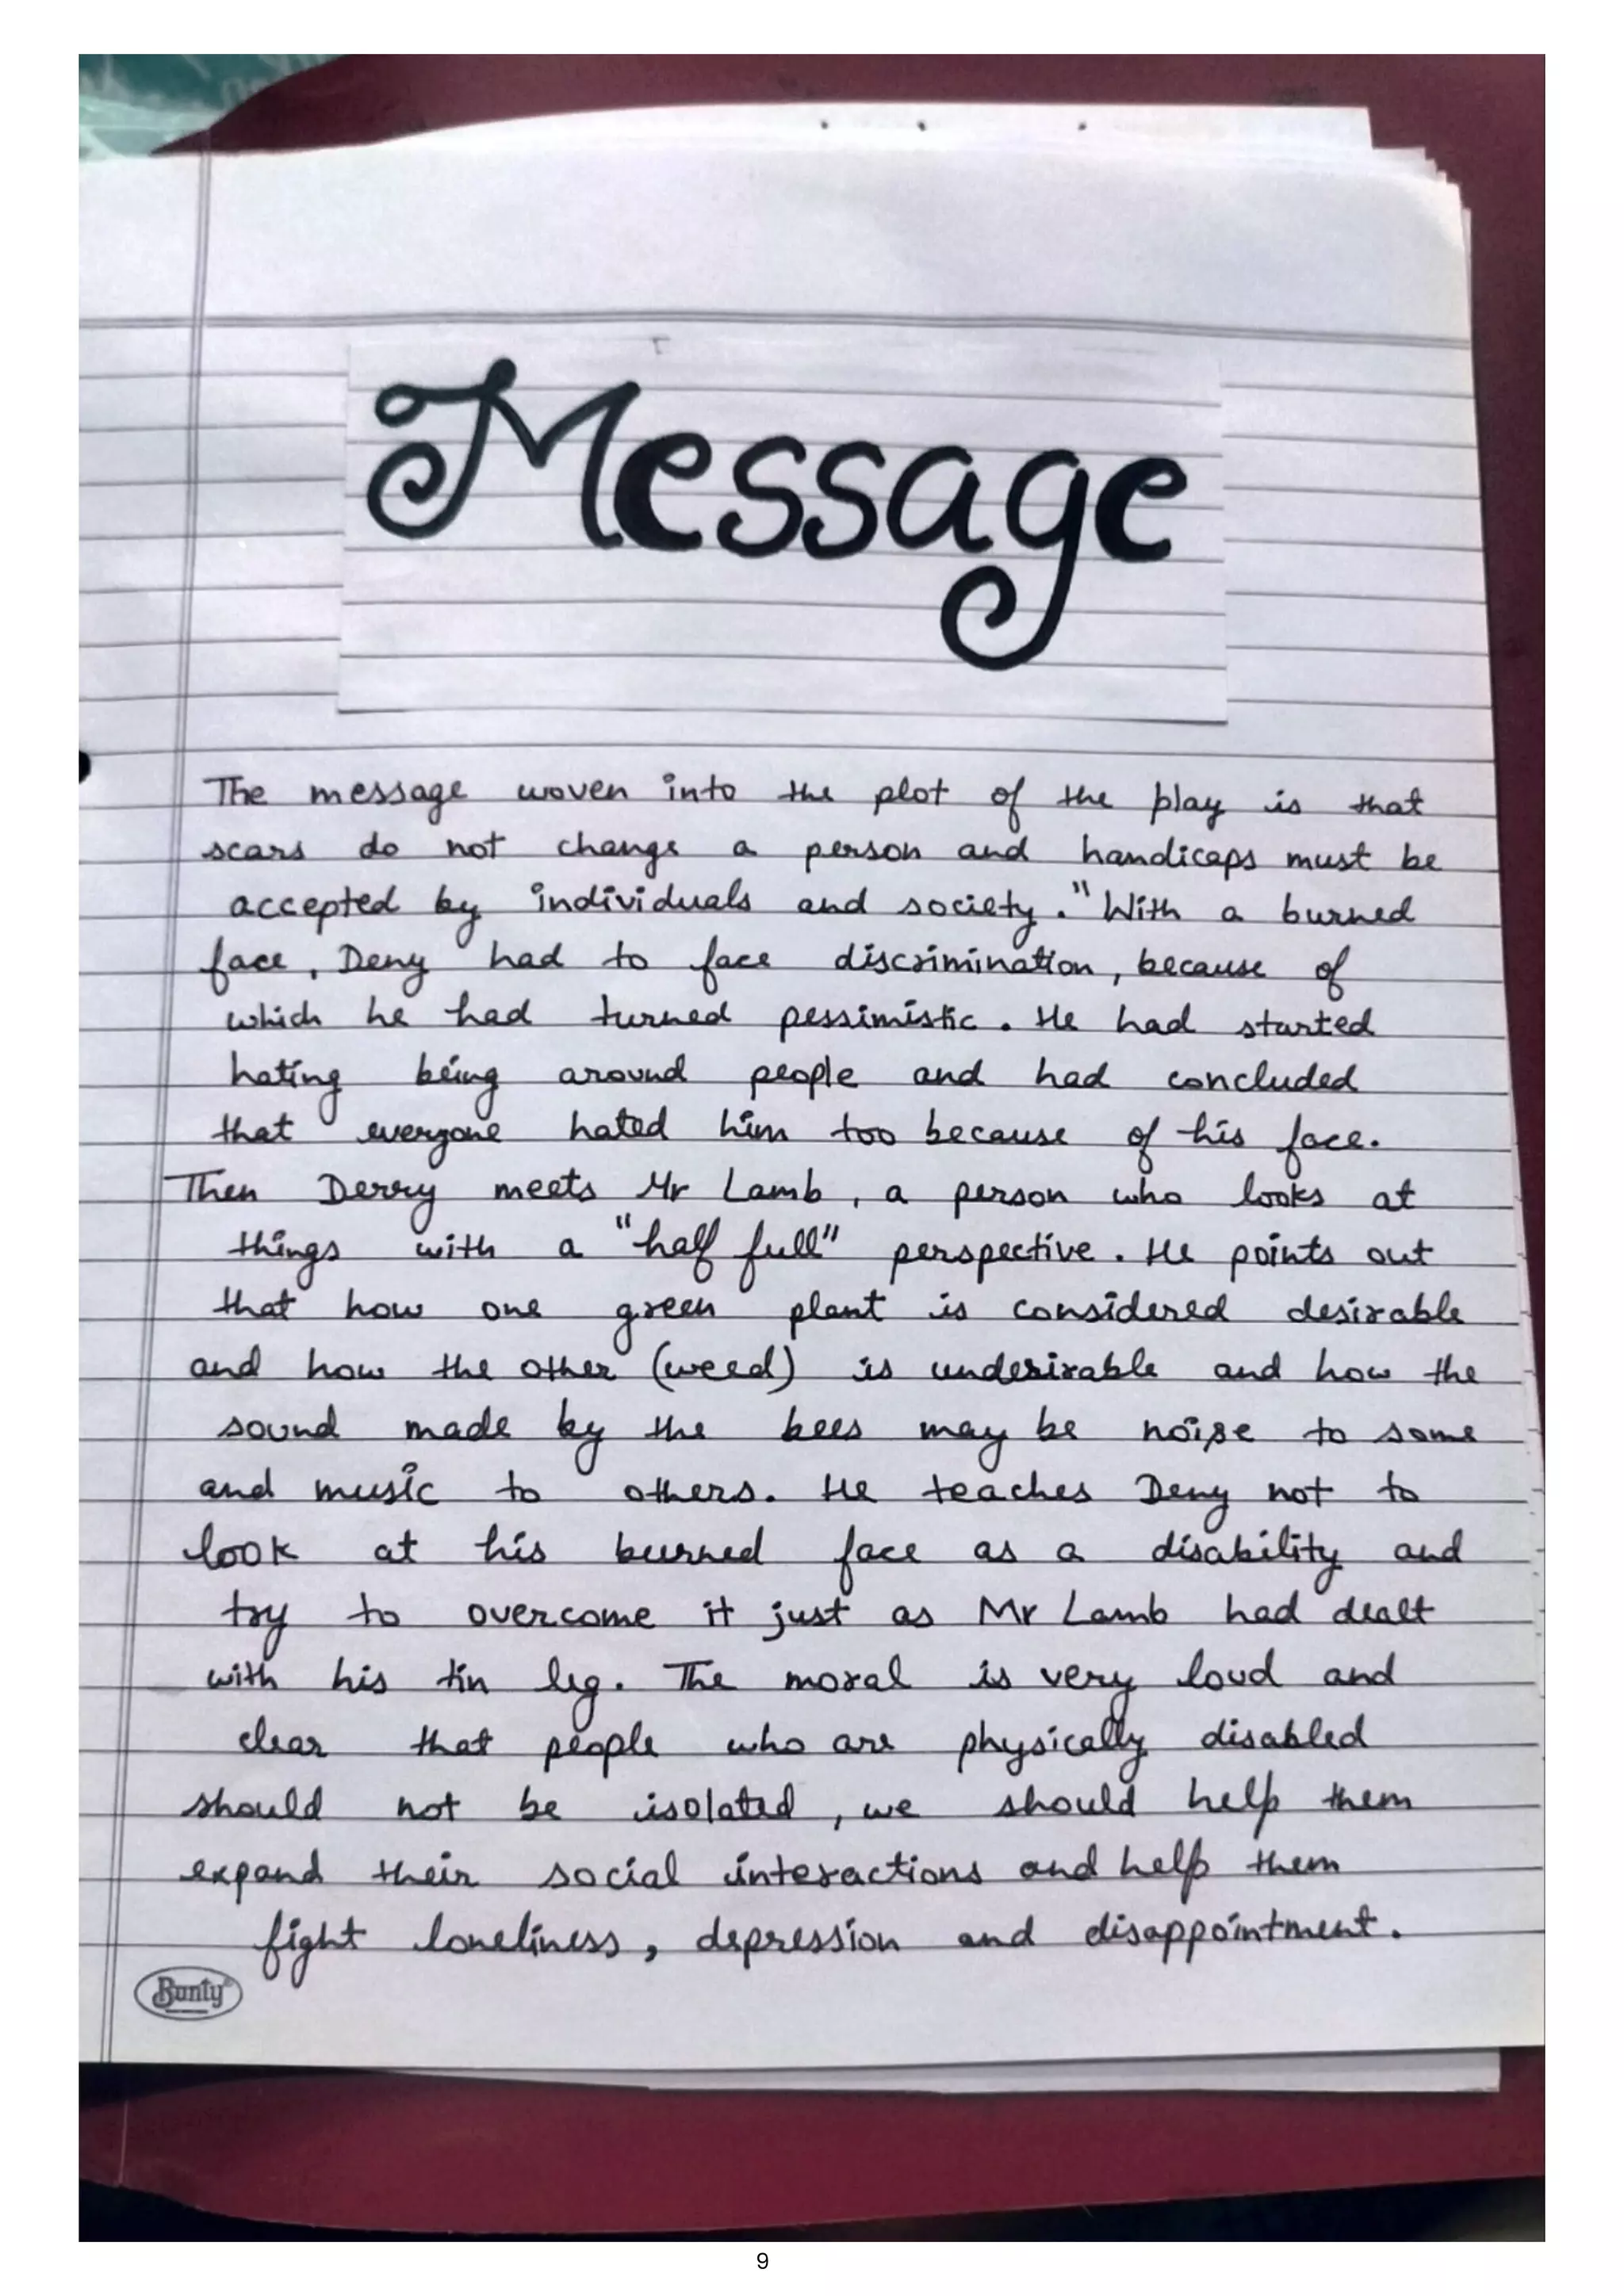 Message
The message woven into the plot of the play is that
scars do not change a person and handicaps must be
accepted by individuals and society." With a burned
face, Derry had to face discrimination, because of
which he had turned pessimistic. He had started
hating being around people and had concluded
that everyone hated him too because of his face.
Then Derry meets Mr Lamb, a person who looks at
things with a "half full" perspective. He points out
that how one green plant is considered desirable
and how the other (weed) is undesirable and how the
sound made by the bees may be noise to some
and music to others. He teaches Derry not to
look at his burned face as a disability and
try to overcome it just as Mr Lamb had dealt
with his tin leg. The moral is very loud and
clear that people who are physically disabled
should not be isolated, we should help them
expand their social interactions and help them
fight loneliness, depression and disappointment.
Bunty
9